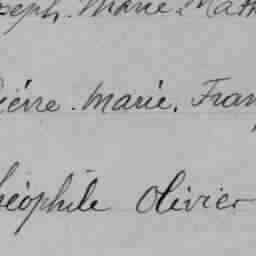 seph. Marie. Math
ierre. Marie. Fran
héophile Olivier